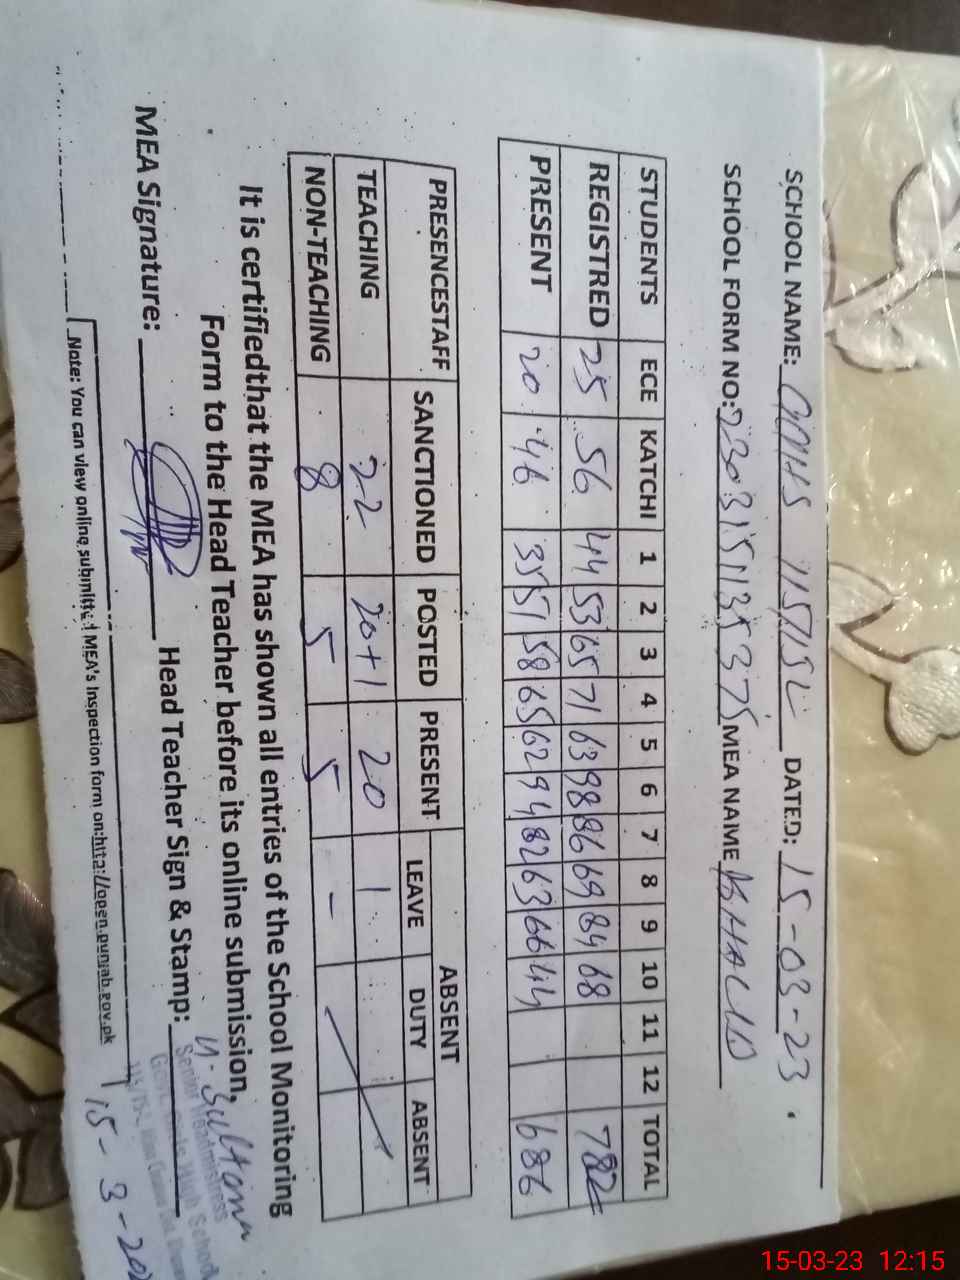 SCHOOL NAME: GGHS 115/15L DATED: 15-03-23.
SCHOOL FORM NO: 230315113537 MEA NAME KHALID
STUDENTS ECE KATCHI 1 2 3 4 5 6 7 8 9 10 11 12 TOTAL
REGISTRED 25 56 44 53 65 71 63 98 86 69 84 68 782
PRESENT 20 46 35 51 58 65 62 94 82 63 66 44 686
PRESENCESTAFF SANCTIONED POSTED PRESENT ABSENT
LEAVE DUTY ABSENT
TEACHING 22 20+1 20 1
NON-TEACHING 8 5 5 -
It is certifiedthat the MEA has shown all entries of the School Monitoring
Form to the Head Teacher before its online submission.
MEA Signature: Head Teacher Sign & Stamp: N. Sultana
Senior Headmistress
Govt. Girls High School
115/15-L
15-3-20
Note: You can view online submitted MEA's Inspection form on:http://open.punjab.gov.pk
15-03-23 12:15